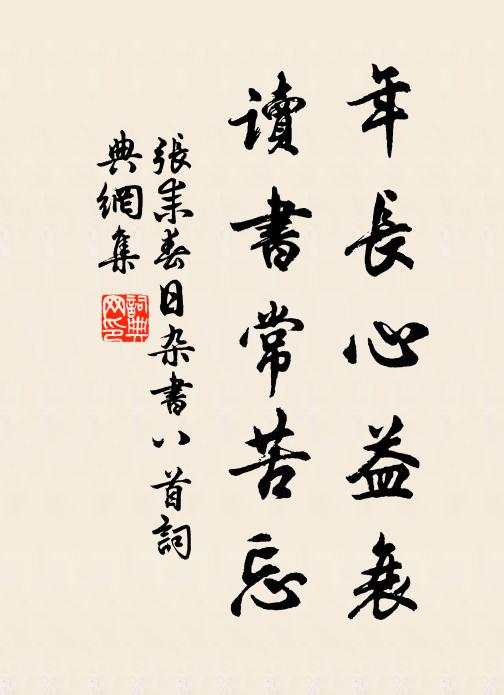 年長心益衰
讀書常苦忘
張耒春日杂書八首詞
典網集
詞典网印